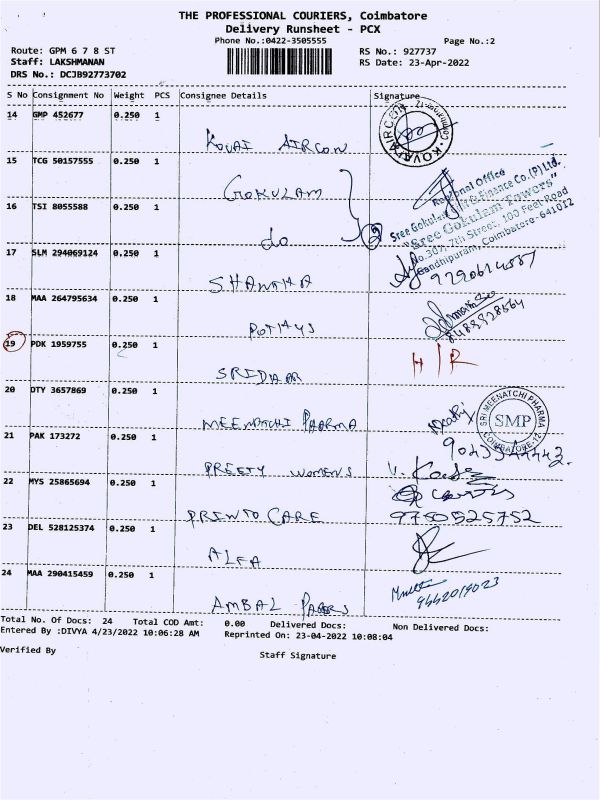 THE PROFESSIONAL COURIERS, Coimbatore
Delivery Runsheet - PCX
Phone No.:0422-3505555
Page No.:2
Route: GPM 6 7 8 ST
RS No.: 927737
Staff: LAKSHMANAN
RS Date: 23-Apr-2022
DRS No.: DCJB92773702
S No Consignment No Weight PCS Consignee Details Signature
14 GMP 452677 0.250 1
KOVAI AIRCON
KOVAI AIRCON
15 TCG 50157555 0.250 1
GOKULAM
Regional Office
Sree Gokulam Finance Co.(P)Ltd.
"Sree Gokulam Towers"
No.307, 7th Street, 100 Feet Road
Gandhipuram, Coimbatore-641012
16 TSI 8055588 0.250 1
do
17 SLM 294069124 0.250 1
SHANTHA
18 MAA 264795634 0.250 1
POTHYS
19 PDK 1959755 0.250 1
SRIDHAR
H/R
20 DTY 3657869 0.250 1
MEENATCHI PHARMA
SRI MEENATCHI PHARMA
SMP
COIMBATORE-12
21 PAK 173272 0.250 1
PREETY WOMENS
22 MYS 25865694 0.250 1
PRINTO CARE
9750525752
23 DEL 528125374 0.250 1
ALFA
24 MAA 290415459 0.250 1
AMBAL PAPERS
9662019023
Total No. Of Docs: 24 Total COD Amt: 0.00 Delivered Docs: Non Delivered Docs:
Entered By :DIVYA 4/23/2022 10:06:28 AM Reprinted On: 23-04-2022 10:08:04
Verified By
Staff Signature